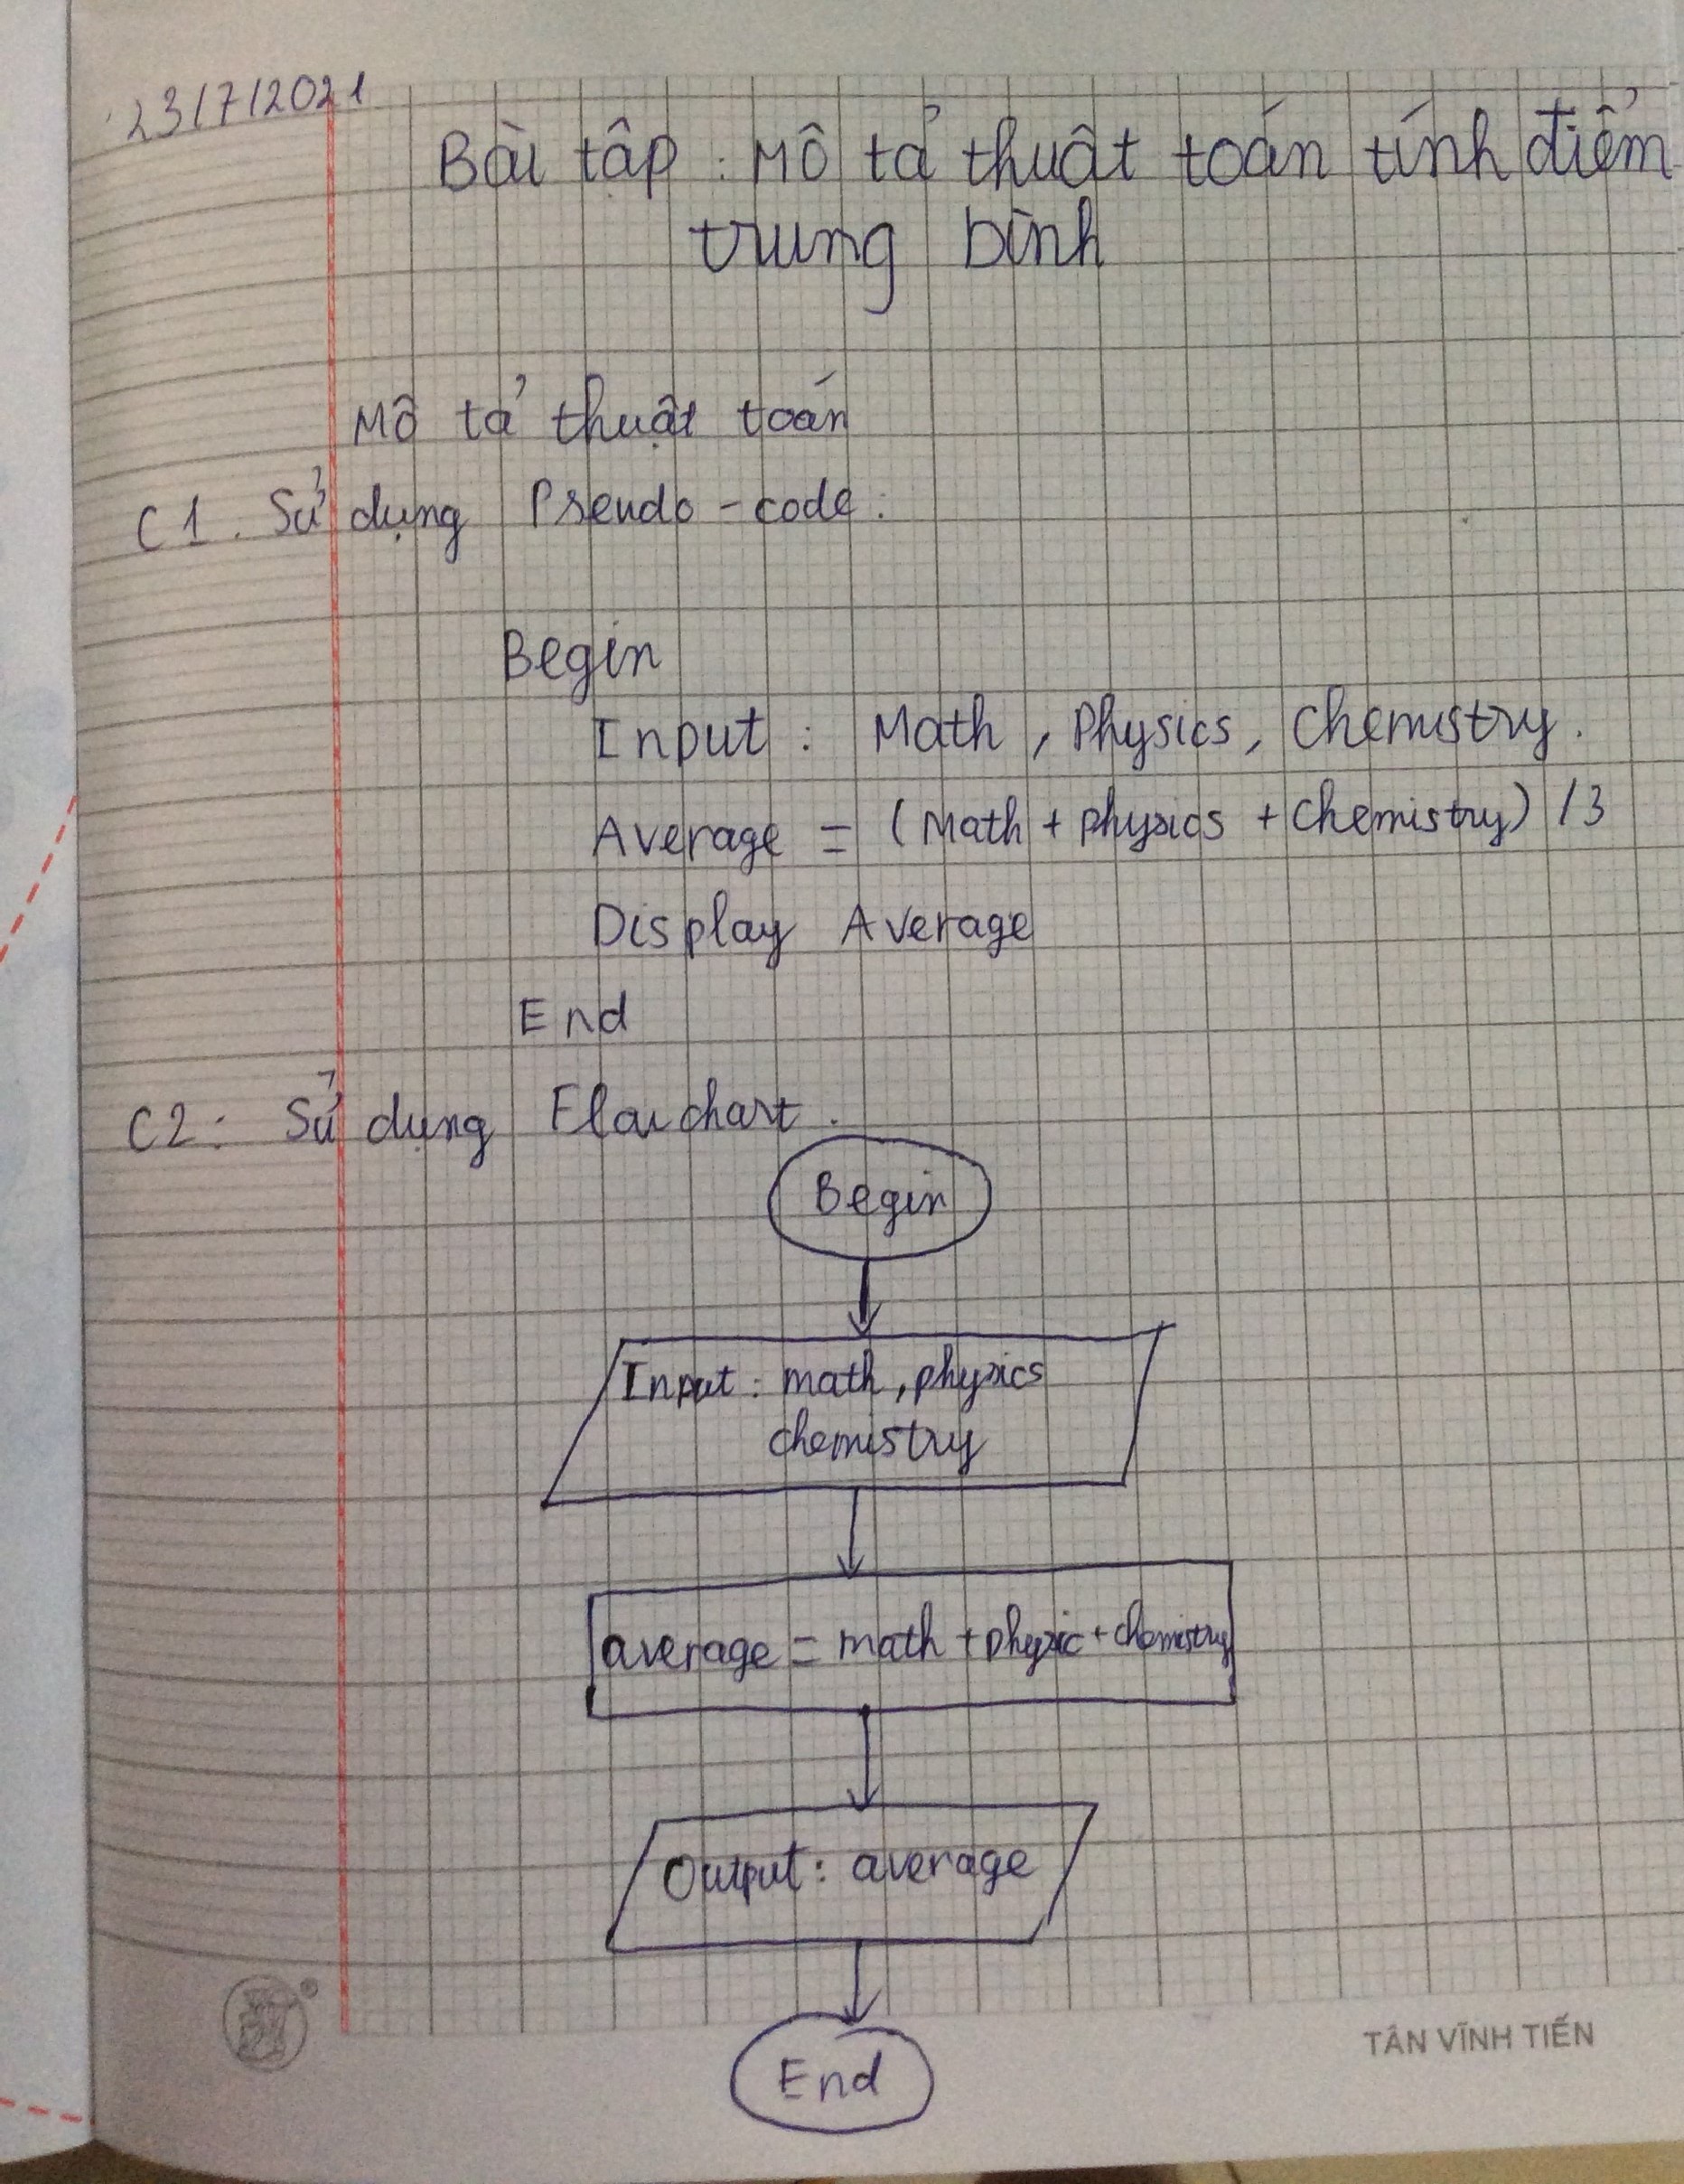 23/7/2021
Bài tập: Mô tả thuật toán tính điểm
trung bình
Mô tả thuật toán
C1. Sử dụng Pseudo-code:
Begin
Input: Math, Physics, Chemistry.
Average = (Math + physics + Chemistry) /3
Display Average
End
C2: Sử dụng Flowchart.
Begin
Input: math, physics
chemistry
average = math + physic + chemistry
Output: average
End
TÂN VĨNH TIẾN